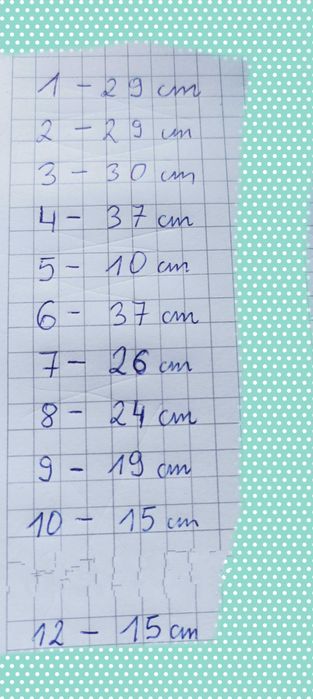 1 - 29 cm
2 - 29 cm
3 - 30 cm
4 - 37 cm
5 - 10 cm
6 - 37 cm
7 - 26 cm
8 - 24 cm
9 - 19 cm
10 - 15 cm
12 - 15 cm